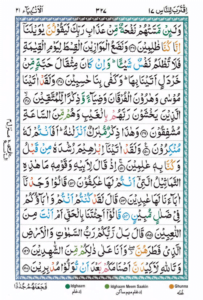 اِقْتَرَبَ لِلنَّاسِ ١٧ ٣٢٧ اَلْاَنْبِيَآء ٢١
وَلَئِنْ مَّسَّتْهُمْ نَفْحَةٌ مِّنْ عَذَابِ رَبِّكَ لَيَقُوْلُنَّ يٰوَيْلَنَاۤ
اِنَّا كُنَّا ظٰلِمِيْنَ ۝ وَنَضَعُ الْمَوَازِيْنَ الْقِسْطَ لِيَوْمِ الْقِيٰمَةِ
فَلَا تُظْلَمُ نَفْسٌ شَيْـًٔا ؕ وَاِنْ كَانَ مِثْقَالَ حَبَّةٍ مِّنْ
خَرْدَلٍ اَتَيْنَا بِهَا ؕ وَكَفٰى بِنَا حٰسِبِيْنَ ۝ وَلَقَدْ اٰتَيْنَا
مُوْسٰى وَهٰرُوْنَ الْفُرْقَانَ وَضِيَآءً وَّذِكْرًا لِّلْمُتَّقِيْنَ ۝
الَّذِيْنَ يَخْشَوْنَ رَبَّهُمْ بِالْغَيْبِ وَهُمْ مِّنَ السَّاعَةِ
مُشْفِقُوْنَ ۝ وَهٰذَا ذِكْرٌ مُّبٰرَكٌ اَنْزَلْنٰهُ ؕ اَفَاَنْتُمْ لَهٗ
مُنْكِرُوْنَ ۝ وَلَقَدْ اٰتَيْنَاۤ اِبْرٰهِيْمَ رُشْدَهٗ مِنْ قَبْلُ
وَكُنَّا بِهٖ عٰلِمِيْنَ ۝ اِذْ قَالَ لِاَبِيْهِ وَقَوْمِهٖ مَا هٰذِهِ
التَّمَاثِيْلُ الَّتِيْۤ اَنْتُمْ لَهَا عٰكِفُوْنَ ۝ قَالُوْا وَجَدْنَاۤ
اٰبَآءَنَا لَهَا عٰبِدِيْنَ ۝ قَالَ لَقَدْ كُنْتُمْ اَنْتُمْ وَاٰبَآؤُكُمْ
فِيْ ضَلٰلٍ مُّبِيْنٍ ۝ قَالُوْۤا اَجِئْتَنَا بِالْحَقِّ اَمْ اَنْتَ مِنَ
اللّٰعِبِيْنَ ۝ قَالَ بَلْ رَّبُّكُمْ رَبُّ السَّمٰوٰتِ وَالْاَرْضِ
الَّذِيْ فَطَرَهُنَّ ۖ وَاَنَا عَلٰى ذٰلِكُمْ مِّنَ الشّٰهِدِيْنَ ۝
وَتَاللّٰهِ لَاَكِيْدَنَّ اَصْنَامَكُمْ بَعْدَ اَنْ تُوَلُّوْا مُدْبِرِيْنَ ۝
فَجَعَلَهُمْ جُذٰذًا
Idgham
Idgham Meem Saakin
Ghunna